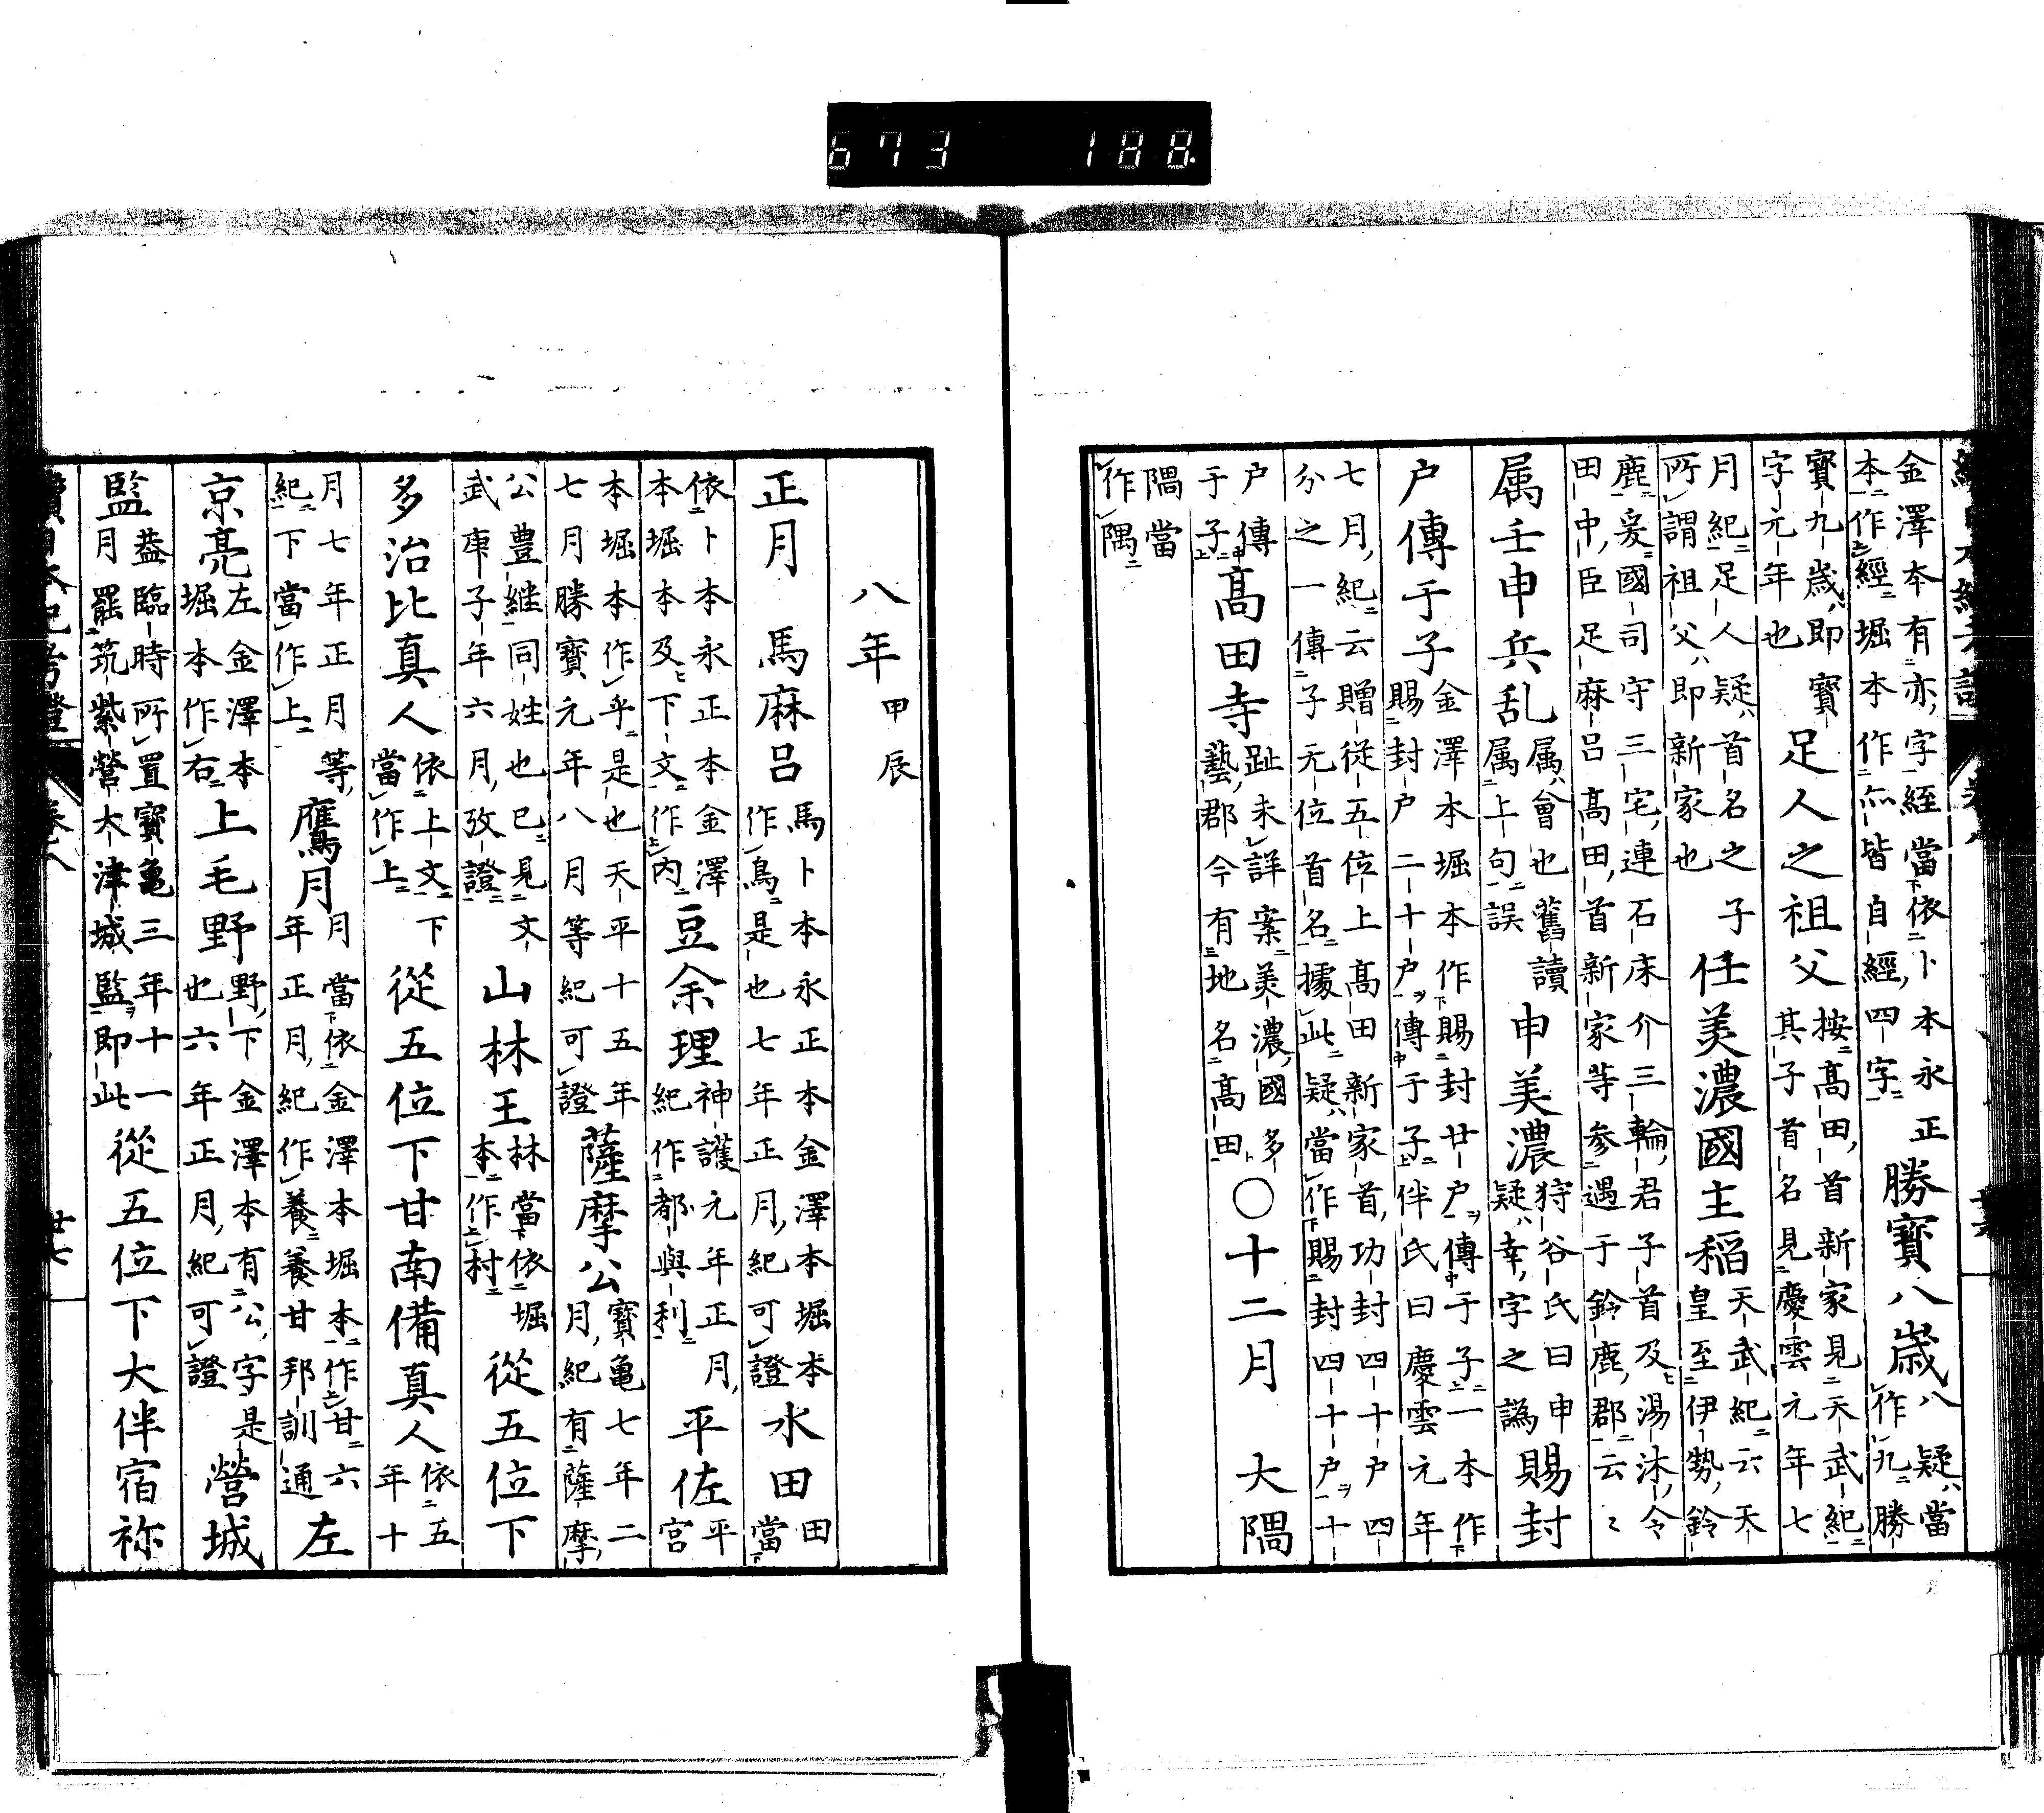 金澤本有亦字経當依卜本永正本作經堀本作亦皆自經四字勝寶八歳八疑當作九勝
寳九歳即寳字元年也足人之祖父按高田首新家見天武紀其子首名見慶雲元年七
月紀足人疑首名之子所謂祖父即新家也任美濃國主稻天武紀云天皇至伊勢鈴
鹿爰國司守三宅連石床介三輪君子首及湯沐令田中臣足麻呂高田首新家等参遇于鈴鹿郡云々
属壬申兵乱属會也舊讀属上句誤申美濃狩谷氏曰申疑幸字之譌賜封
户傳于子金澤本堀本作賜封廿户傳于子一本作賜封户二十户傳于子伴氏曰慶雲元年
七月紀云贈從五位上高田新家首功封四十户四分之一傳子无位首名據此疑當作賜封四十户十
户傳于子高田寺趾未詳案美濃國多藝郡今有地名高田〇十二月 大隅
隅當作隅
八年甲辰
正月 馬麻呂馬卜本永正本金澤本堀本作鳥是也七年正月紀可證水田田當
依卜本永正本金澤本堀本及下文作内豆余理神護元年正月紀作都與利平佐平宮
本堀本作乎是也天平十五年七月勝寳元年八月等紀可證薩摩公寳亀七年二月紀有薩摩
公豊継同姓也已見文武庚子年六月攷證山林王林當依堀本作村從五位下
多治比真人依上文下當作上從五位下甘南備真人依五年十
月七年正月等紀下當作上鷹月月當依金澤本堀本作甘六年正月紀作養養甘邦訓通左
京亮左金澤本堀本作右上毛野野下金澤本有公字是也六年正月紀可證營城
監葢臨時所置寶亀三年十一月罷筑紫營大津城監即此從五位下大伴宿祢
廿七
673 188.